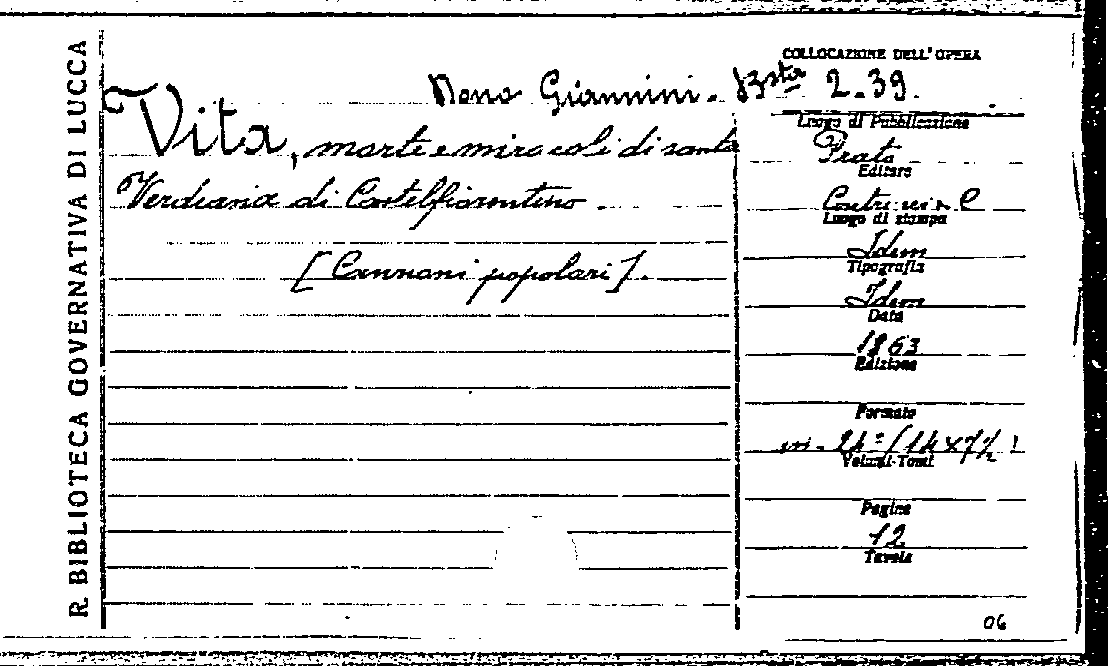 R. BIBLIOTECA GOVERNATIVA DI LUCCA
COLLOCAZIONE DELL'OPERA
Dono Giannini. Bsta 2.39.
Vita, morte e miracoli di santa
Verdiana di Castelfiorentino.
[Cannoni popolari].
Luogo di Pubblicazione
Prato
Editore
Luogo di stampa
Idem
Tipografia
Idem
Data
1863
Edizione
Formato
in-24º (14x7½)
Volumi-Tomi
Pagine
12
Tavole
06